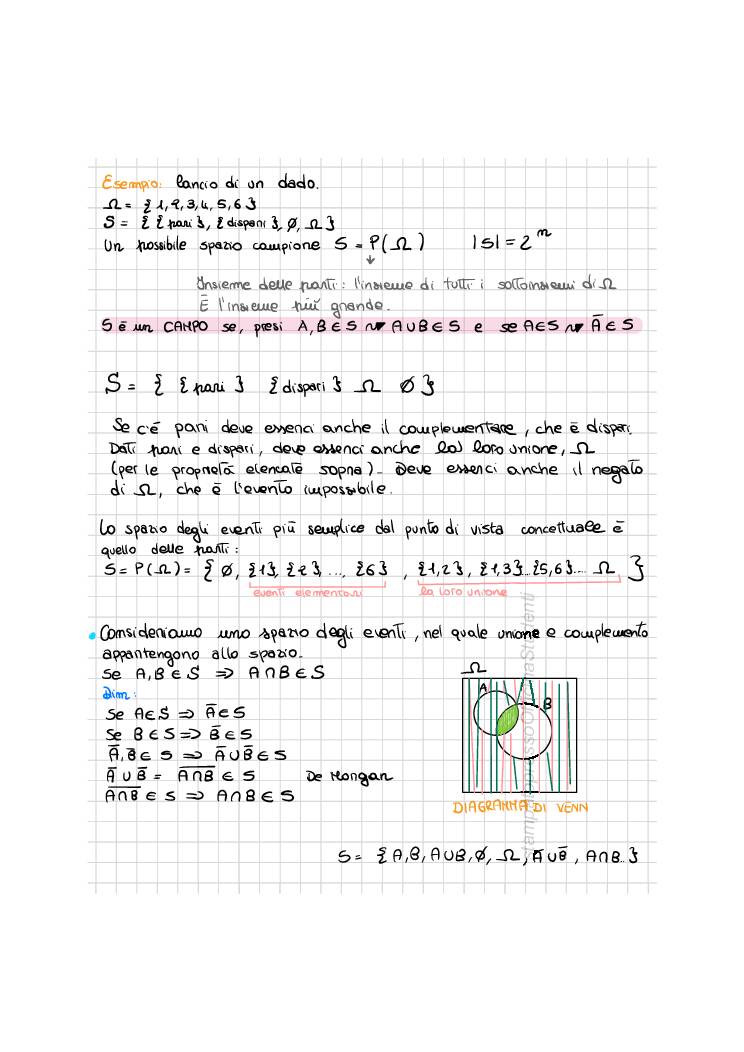 Esempio: lancio di un dado.
Ω = {1, 2, 3, 4, 5, 6}
S = { {pari}, {dispari}, ∅, Ω }
Un possibile spazio campione S = P(Ω) |S| = 2^n
↓
Insieme delle parti: l'insieme di tutti i sottoinsiemi di Ω
È l'insieme più grande.
S è un CAMPO se, presi A, B ∈ S ⇝ A ∪ B ∈ S e se A ∈ S ⇝ A̅ ∈ S
S = { {pari} {dispari} Ω ∅ }
Se c'è pari deve esserci anche il complementare, che è dispari.
Dati pari e dispari, deve esserci anche la) loro unione, Ω
(per le proprietà elencate sopra). Deve esserci anche il negato
di Ω, che è l'evento impossibile.
Lo spazio degli eventi più semplice dal punto di vista concettuale è
quello delle parti:
S = P(Ω) = { ∅, {1}, {2}, ..., {6} , {1,2}, {1,3}...{5,6}.... Ω }
eventi elementari la loro unione
• Consideriamo uno spazio degli eventi, nel quale unione e complemento
appartengono allo spazio.
Se A, B ∈ S ⇒ A ∩ B ∈ S
Dim:
Se A ∈ S ⇒ A̅ ∈ S
Se B ∈ S ⇒ B̅ ∈ S
A̅, B̅ ∈ S ⇒ A̅ ∪ B̅ ∈ S
A̅ ∪ B̅ = \overline{A ∩ B} ∈ S De Morgan
\overline{A ∩ B} ∈ S ⇒ A ∩ B ∈ S
Ω
A
B
DIAGRAMMA DI VENN
S = { A, B, A ∪ B, ∅, Ω, A̅ ∪ B̅, A ∩ B.. }